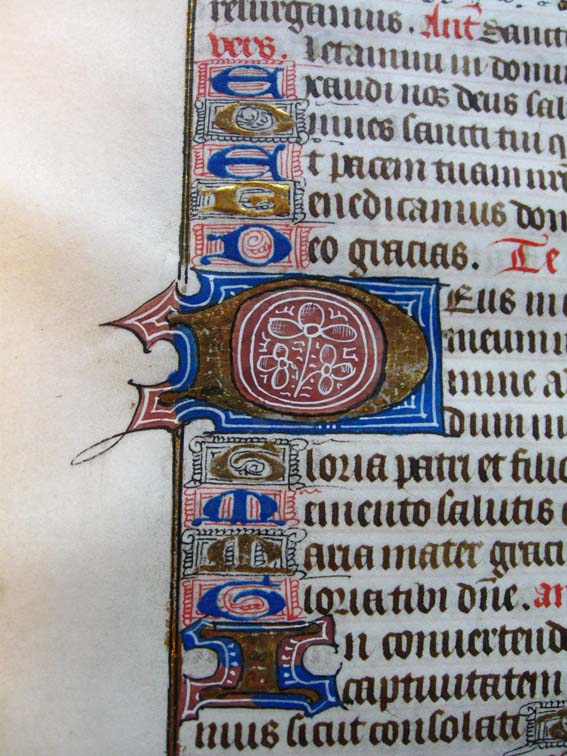 resurgamus. Ant̄ Sancti
vers. Letamini in domi
Exaudi nos deus sal
Omnes sancti tui q
Et pacem tuam
Benedicamus dom
Deo gracias. Te
Deus in
meum in
mine ad
dum
Gloria patri et filio
Memento salutis
Maria mater graci
Gloria tibi dn̄e. an
In convertend
captivitatem
mus sicut consolati